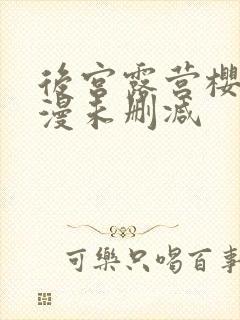 後宫露营樱
漫未删减
可樂只喝百事